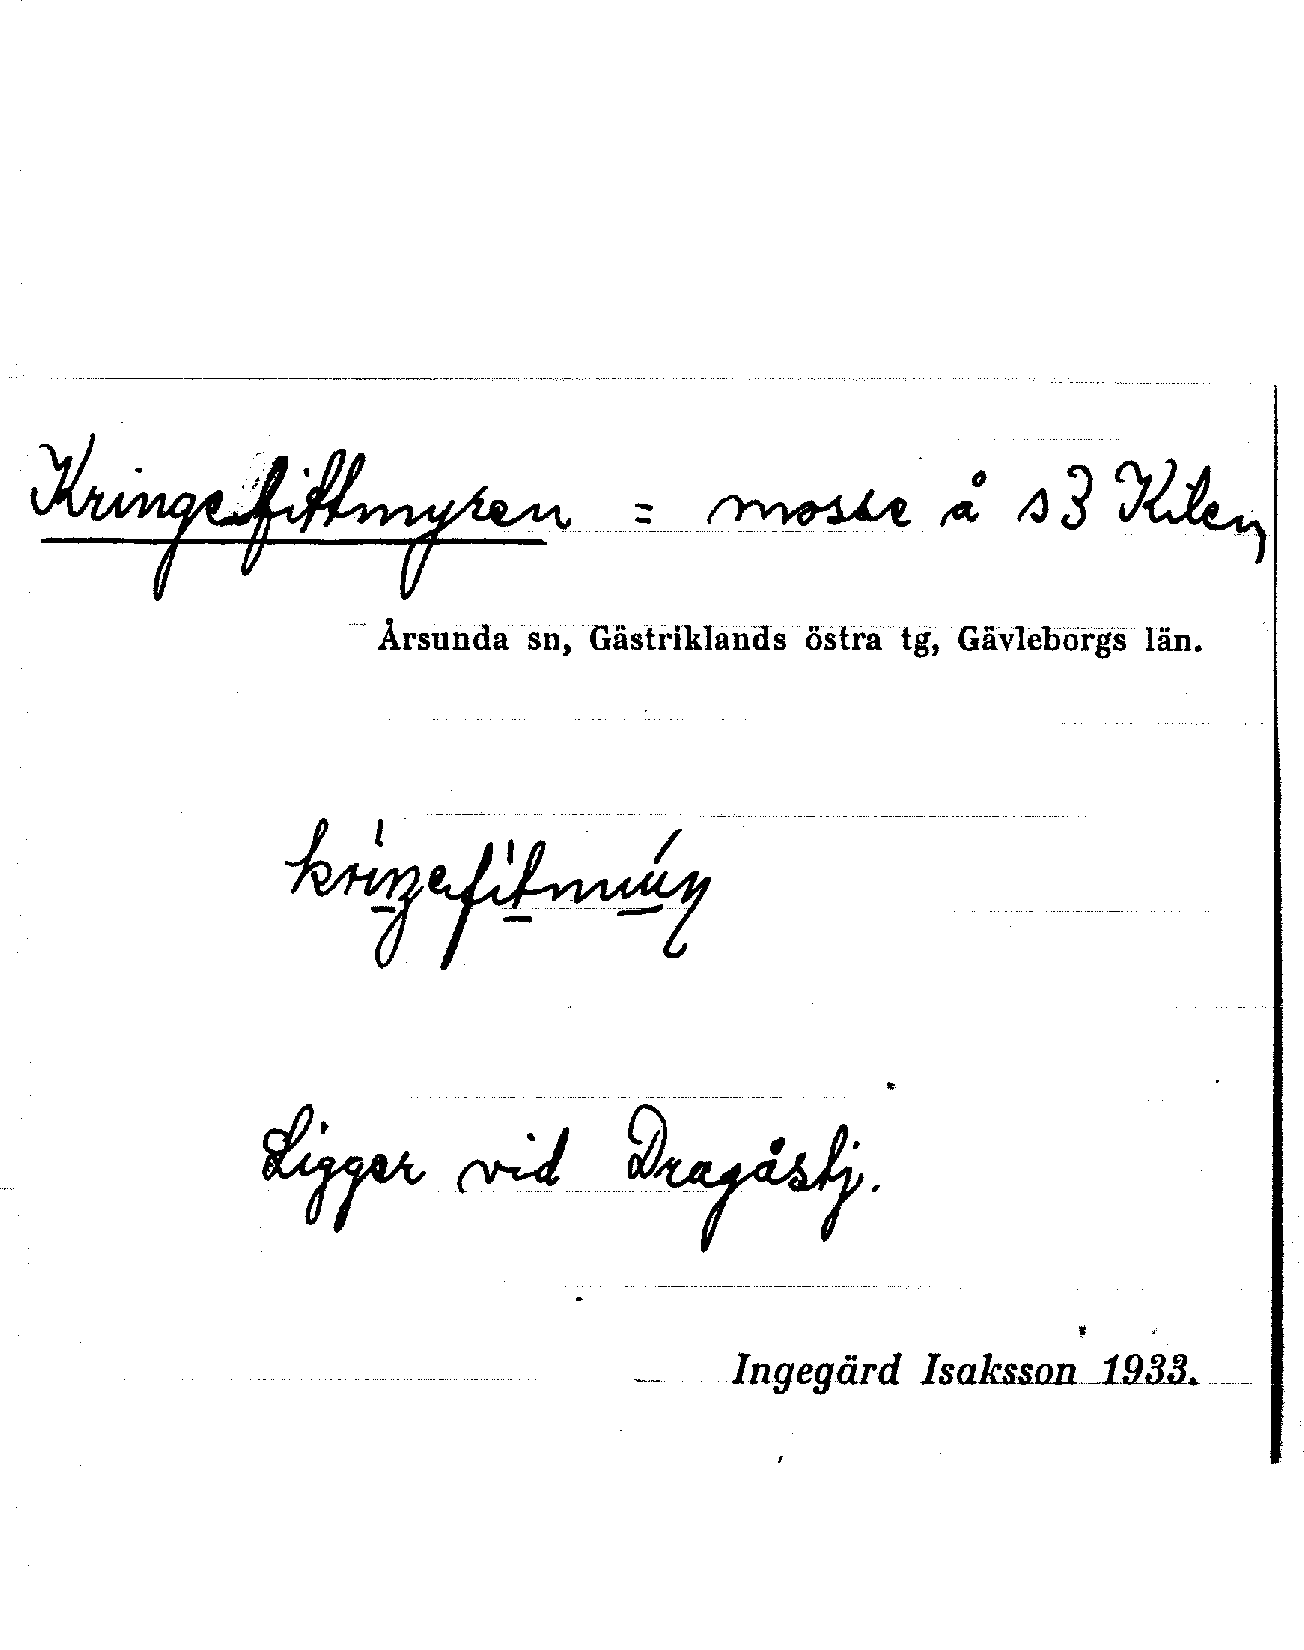 Kringefittmyren = mosse å s3 Kilen
Årsunda sn, Gästriklands östra tg, Gävleborgs län.
Ligger vid Dragåstj.
Ingegärd Isaksson 1933.